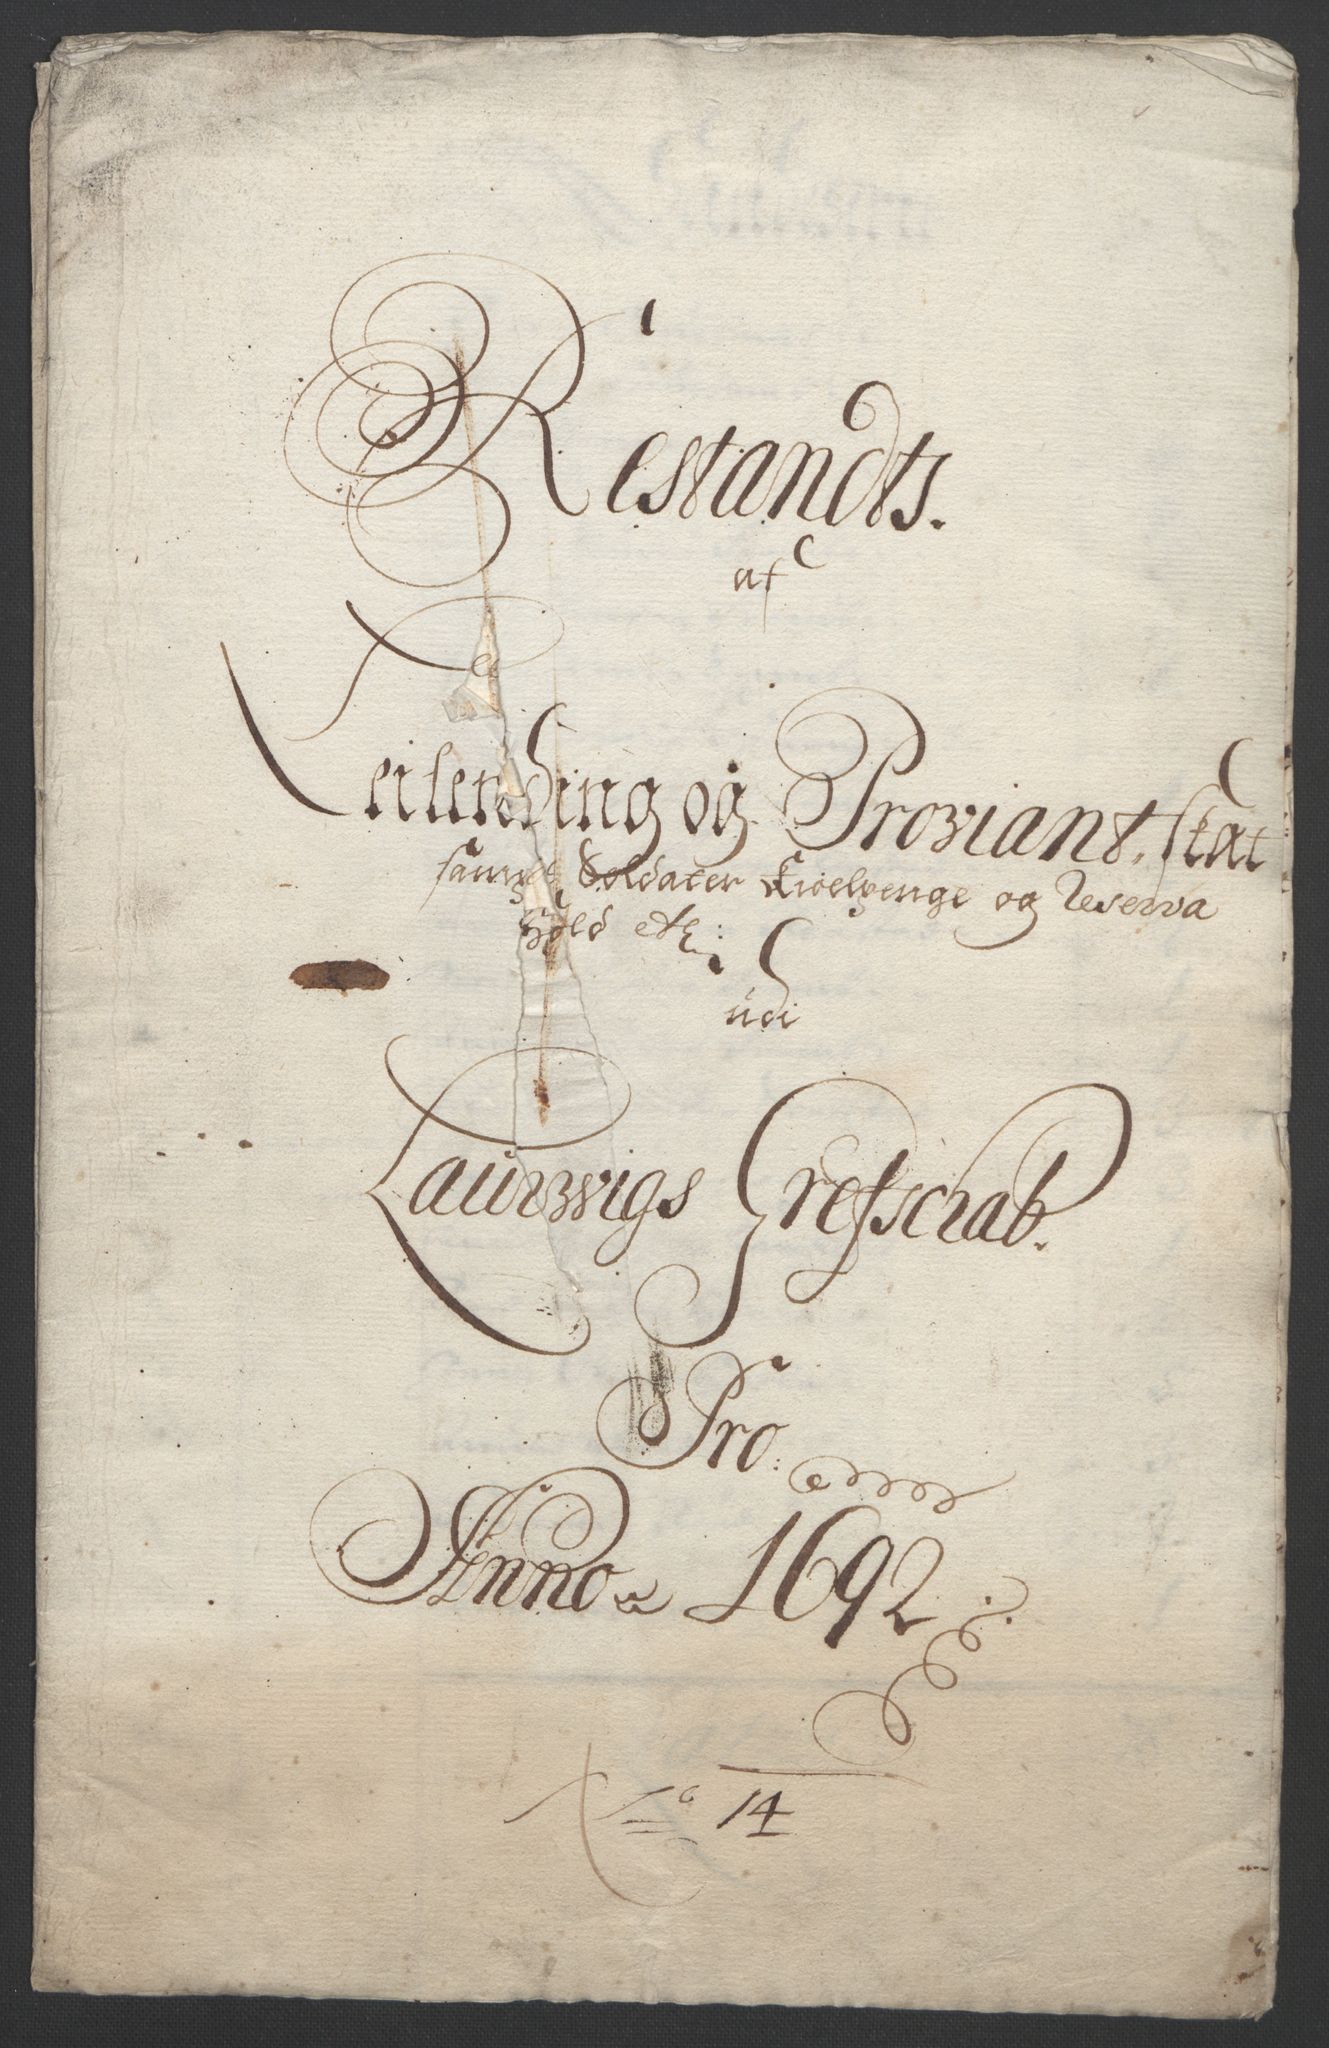 Restandts.
af
Leilending og Proviant. skat
sampt Soldater Kioelpenge og Reserva
Hold etc:
udi
Laurwigs Grefscrab.
Pro.
Anno 1692
No 14